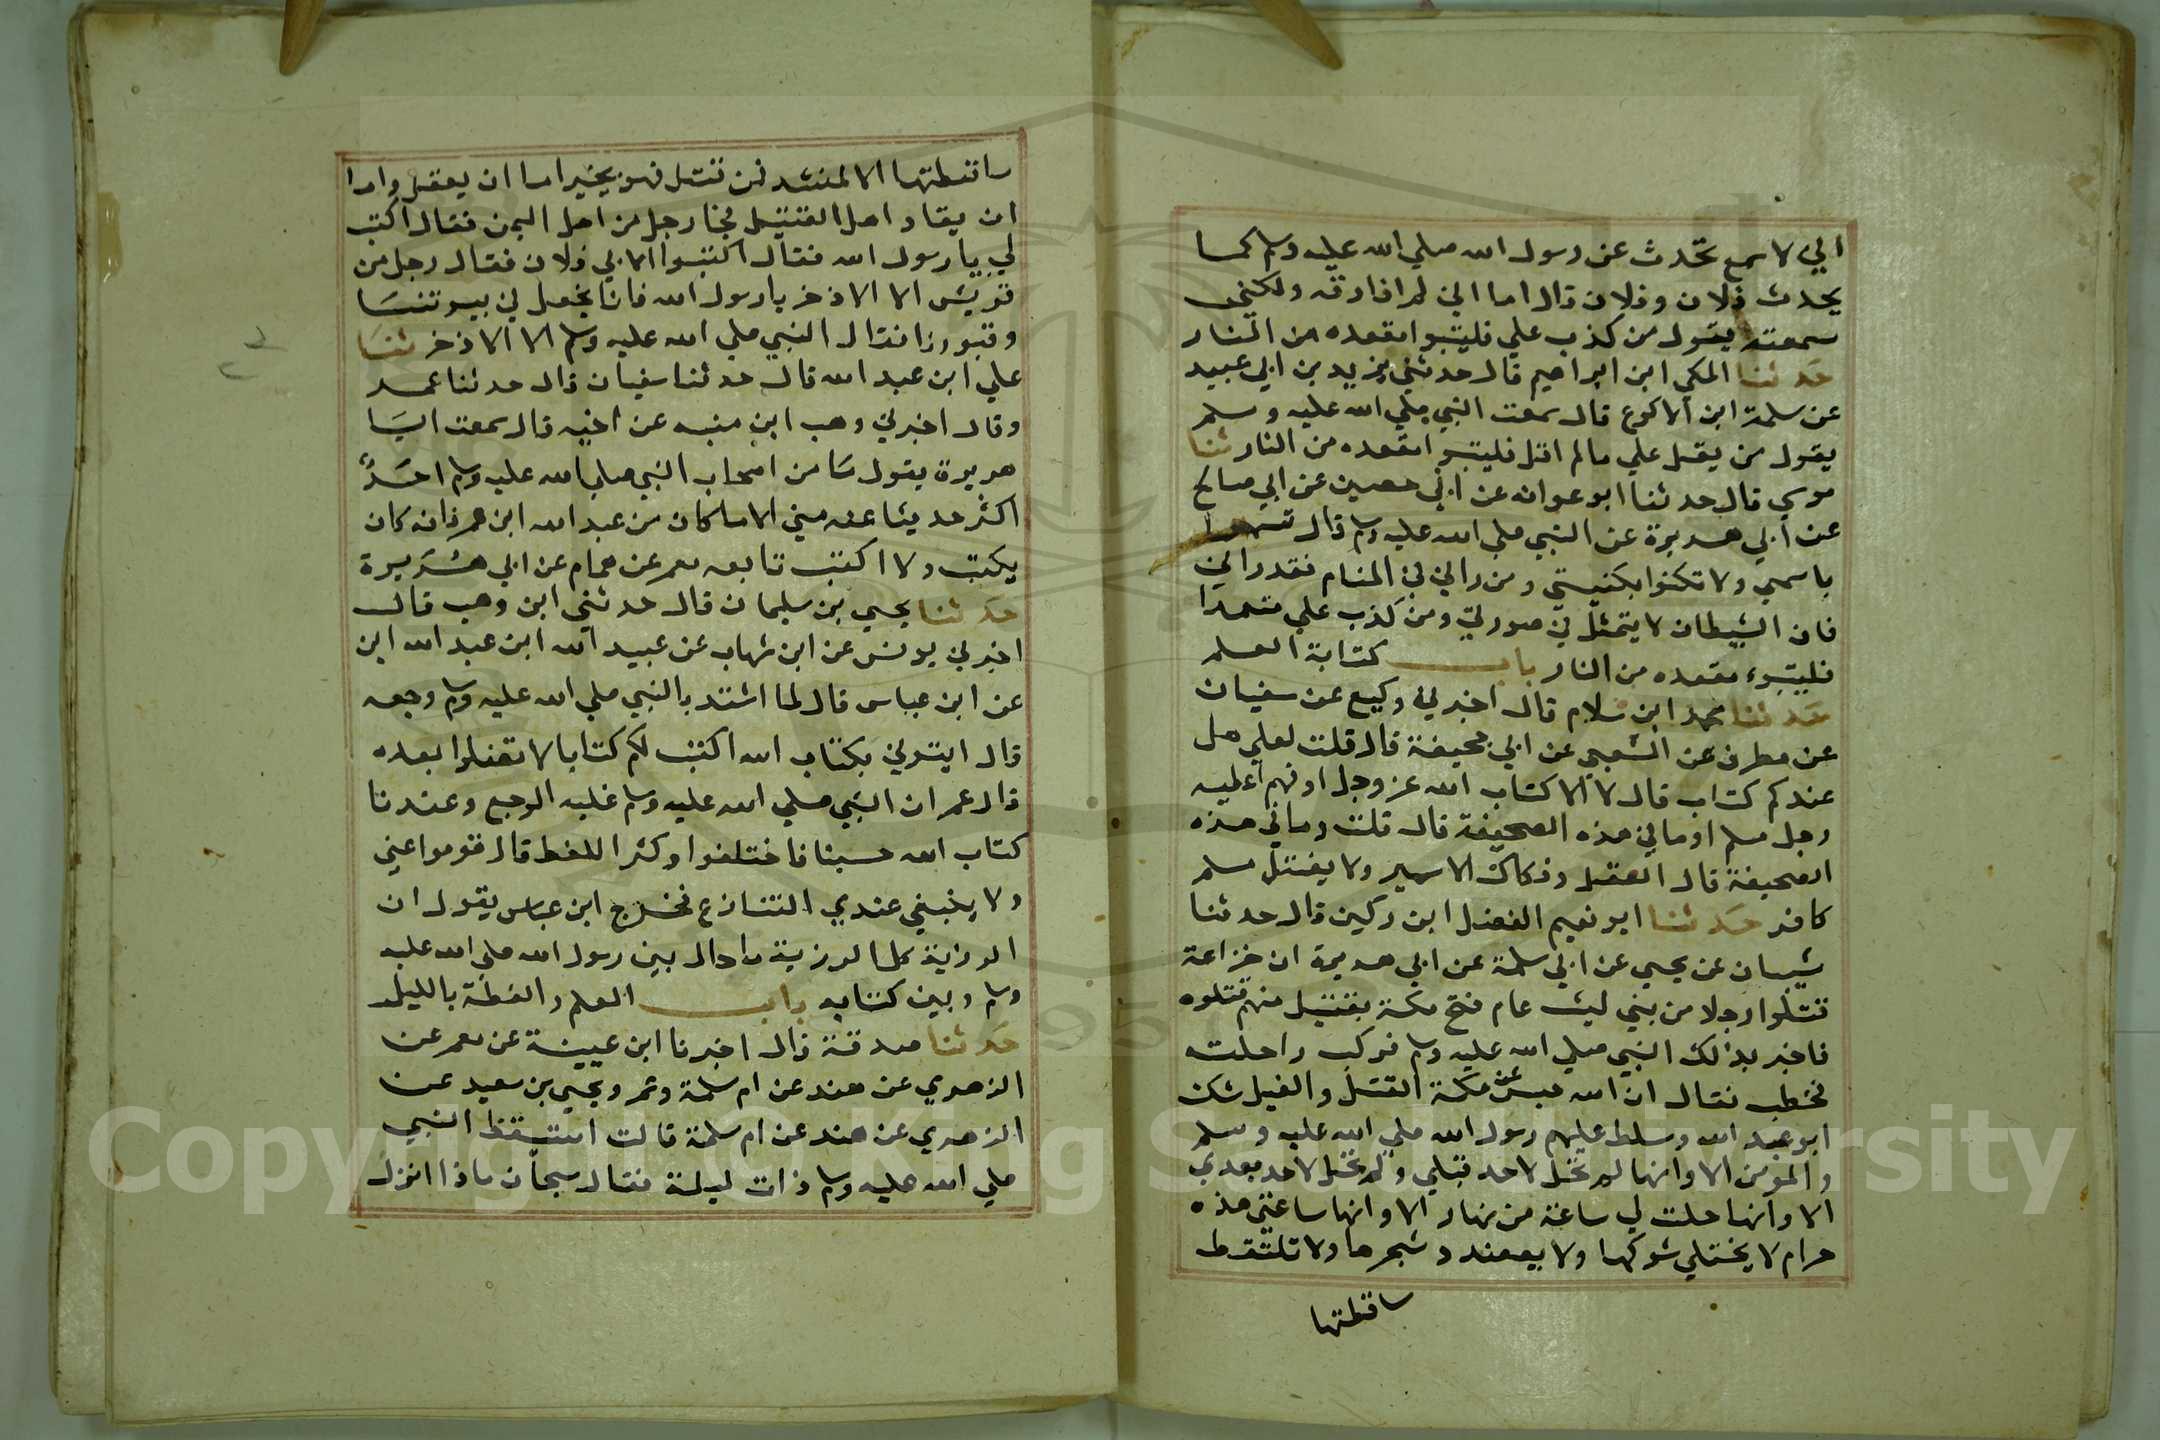 اني لا سمع تحدث عن رسول الله صلي الله عليه وسلم كما
يحدث فلان وفلان قال اما اني لم افارقه ولكني
سمعته يقول من كذب علي فليتبوا مقعده من النار
حدثنا المكي ابن ابراهيم قال حدثني يزيد بن ابي عبيد
عن سلمة ابن الاكوع قال سمعت النبي صلي الله عليه وسلم
يقول من يقل علي مالم اقل فليتبوا مقعده من النار ثنا
موسي قال حدثنا ابو عوانه عن ابي حصين عن ابي صالح
عن ابي هريرة عن النبي صلي الله عليه وسلم قال تسموا
باسمي ولا تكنوا بكنيتي ومن راني في المنام فقد راني
فان الشيطان لا يتمثل في صورتي ومن كذب علي متعمدا
فليتبوء مقعده من النار باب كتابة العلم
حدثنا محمد ابن سلام قال اخبرني وكيع عن سفيان
عن مطرف عن الشعبي عن ابي جحيفة قال قلت لعلي هل
عندكم كتاب قال لا الا كتاب الله عز وجل او فهم اعطيه
رجل مسلم او ما في هذه الصحيفة قال قلت وما في هذه
الصحيفة قال العقل وفكاك الاسير ولا يقتل مسلم
كافر حدثنا ابو نعيم الفضل ابن دكين قال حدثنا
شيبان عن يحيي عن ابي سلمة عن ابي هريرة ان خزاعة
قتلوا رجلا من بني ليث عام فتح مكة بقتيل منهم قتلوه
فاخبر بذلك النبي صلي الله عليه وسلم فركب راحلته
فخطب فقال ان الله حبس عن مكة القتل والفيل شك
ابو عبد الله وسلط عليهم رسول الله صلي الله عليه وسلم
والمومن الا وانها لم تحل لاحد قبلي ولم تحل لاحد بعدي
الا وانها حلت لي ساعة من نهار الا وانها ساعتي هذه
حرام لا يختلي شوكها ولا يعضد شجرها ولا تلتقط
ساقطتها
ساقطتها الا لمنشد فمن قتل فهو بخير اما ان يعقل واما
ان يقاد اهل القتيل فجا رجل من اهل اليمن فقال اكتب
لي يا رسول الله فقال اكتبوا لابي فلان فقال رجل من
قريش الا الاذخر يا رسول الله فانا نجعل في بيوتنا
وقبورنا فقال النبي صلي الله عليه وسلم الا الاذخر ثنا
علي ابن عبد الله قال حدثنا سفيان قال حدثنا عمر
وقال اخبرني وهب ابن منبه عن اخيه قال سمعت ابا
هريرة يقول ما من اصحاب النبي صلي الله عليه وسلم احد
اكثر حديثا عنه مني الا ما كان من عبد الله ابن عمر فانه كان
يكتب ولا اكتب تابعه معمر عن همام عن ابي هريرة
حدثنا يحيي بن سليمان قال حدثني ابن وهب قال
اخبرني يونس عن ابن شهاب عن عبيد الله ابن عبد الله ابن
عن ابن عباس قال لما اشتد بالنبي صلي الله عليه وسلم وجعه
قال ايتوني بكتاب الله اكتب لكم كتابا لا تضلوا بعده
قال عمر ان النبي صلي الله عليه وسلم غلبه الوجع وعندنا
كتاب الله حسبنا فاختلفوا وكثر اللغط قال قوموا عني
ولا ينبغي عندي التنازع فخرج ابن عباس يقول ان
الرزية كل الرزية ما حال بين رسول الله صلي الله عليه
وسلم وبين كتابه باب العلم والعظة بالليل
حدثنا صدقة قال اخبرنا ابن عيينة عن معمر عن
الزهري عن هند عن ام سلمة وعمر ويحيي بن سعيد عن
الزهري عن هند عن ام سلمة قالت استيقظ النبي
صلي الله عليه وسلم ذات ليلة فقال سبحان ماذا انزل
Copyright © King Saud University